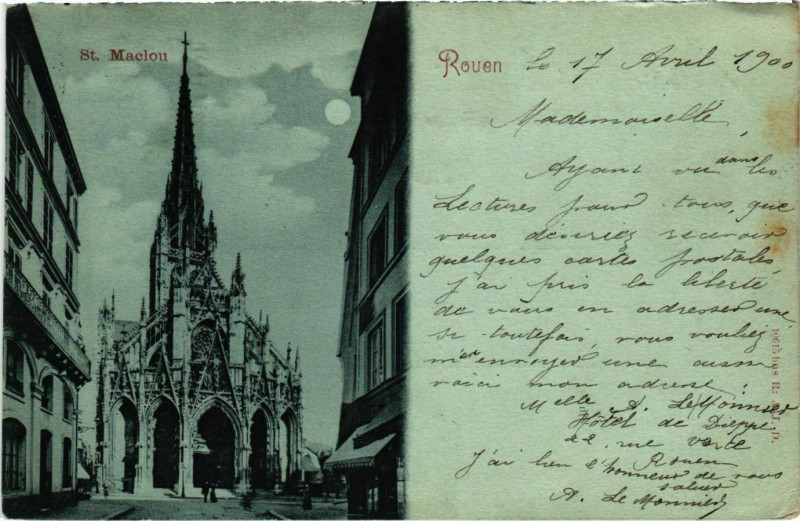 St. Maclou
Rouen le 17 Avril 1900
Mademoiselle,
Ayant vu dans les
Lectures pour tous, que
vous désiriez recevoir
quelques cartes postales
j'ai pris la liberté
de vous en adresser une,
si toutefois, vous vouliez
m'en envoyer une aussi
voici mon adresse :
Melle A. LeMonnier
Hôtel de Dieppe
22, rue verte
Rouen
J'ai bien l'honneur de vous
saluer
A. Le Monnier